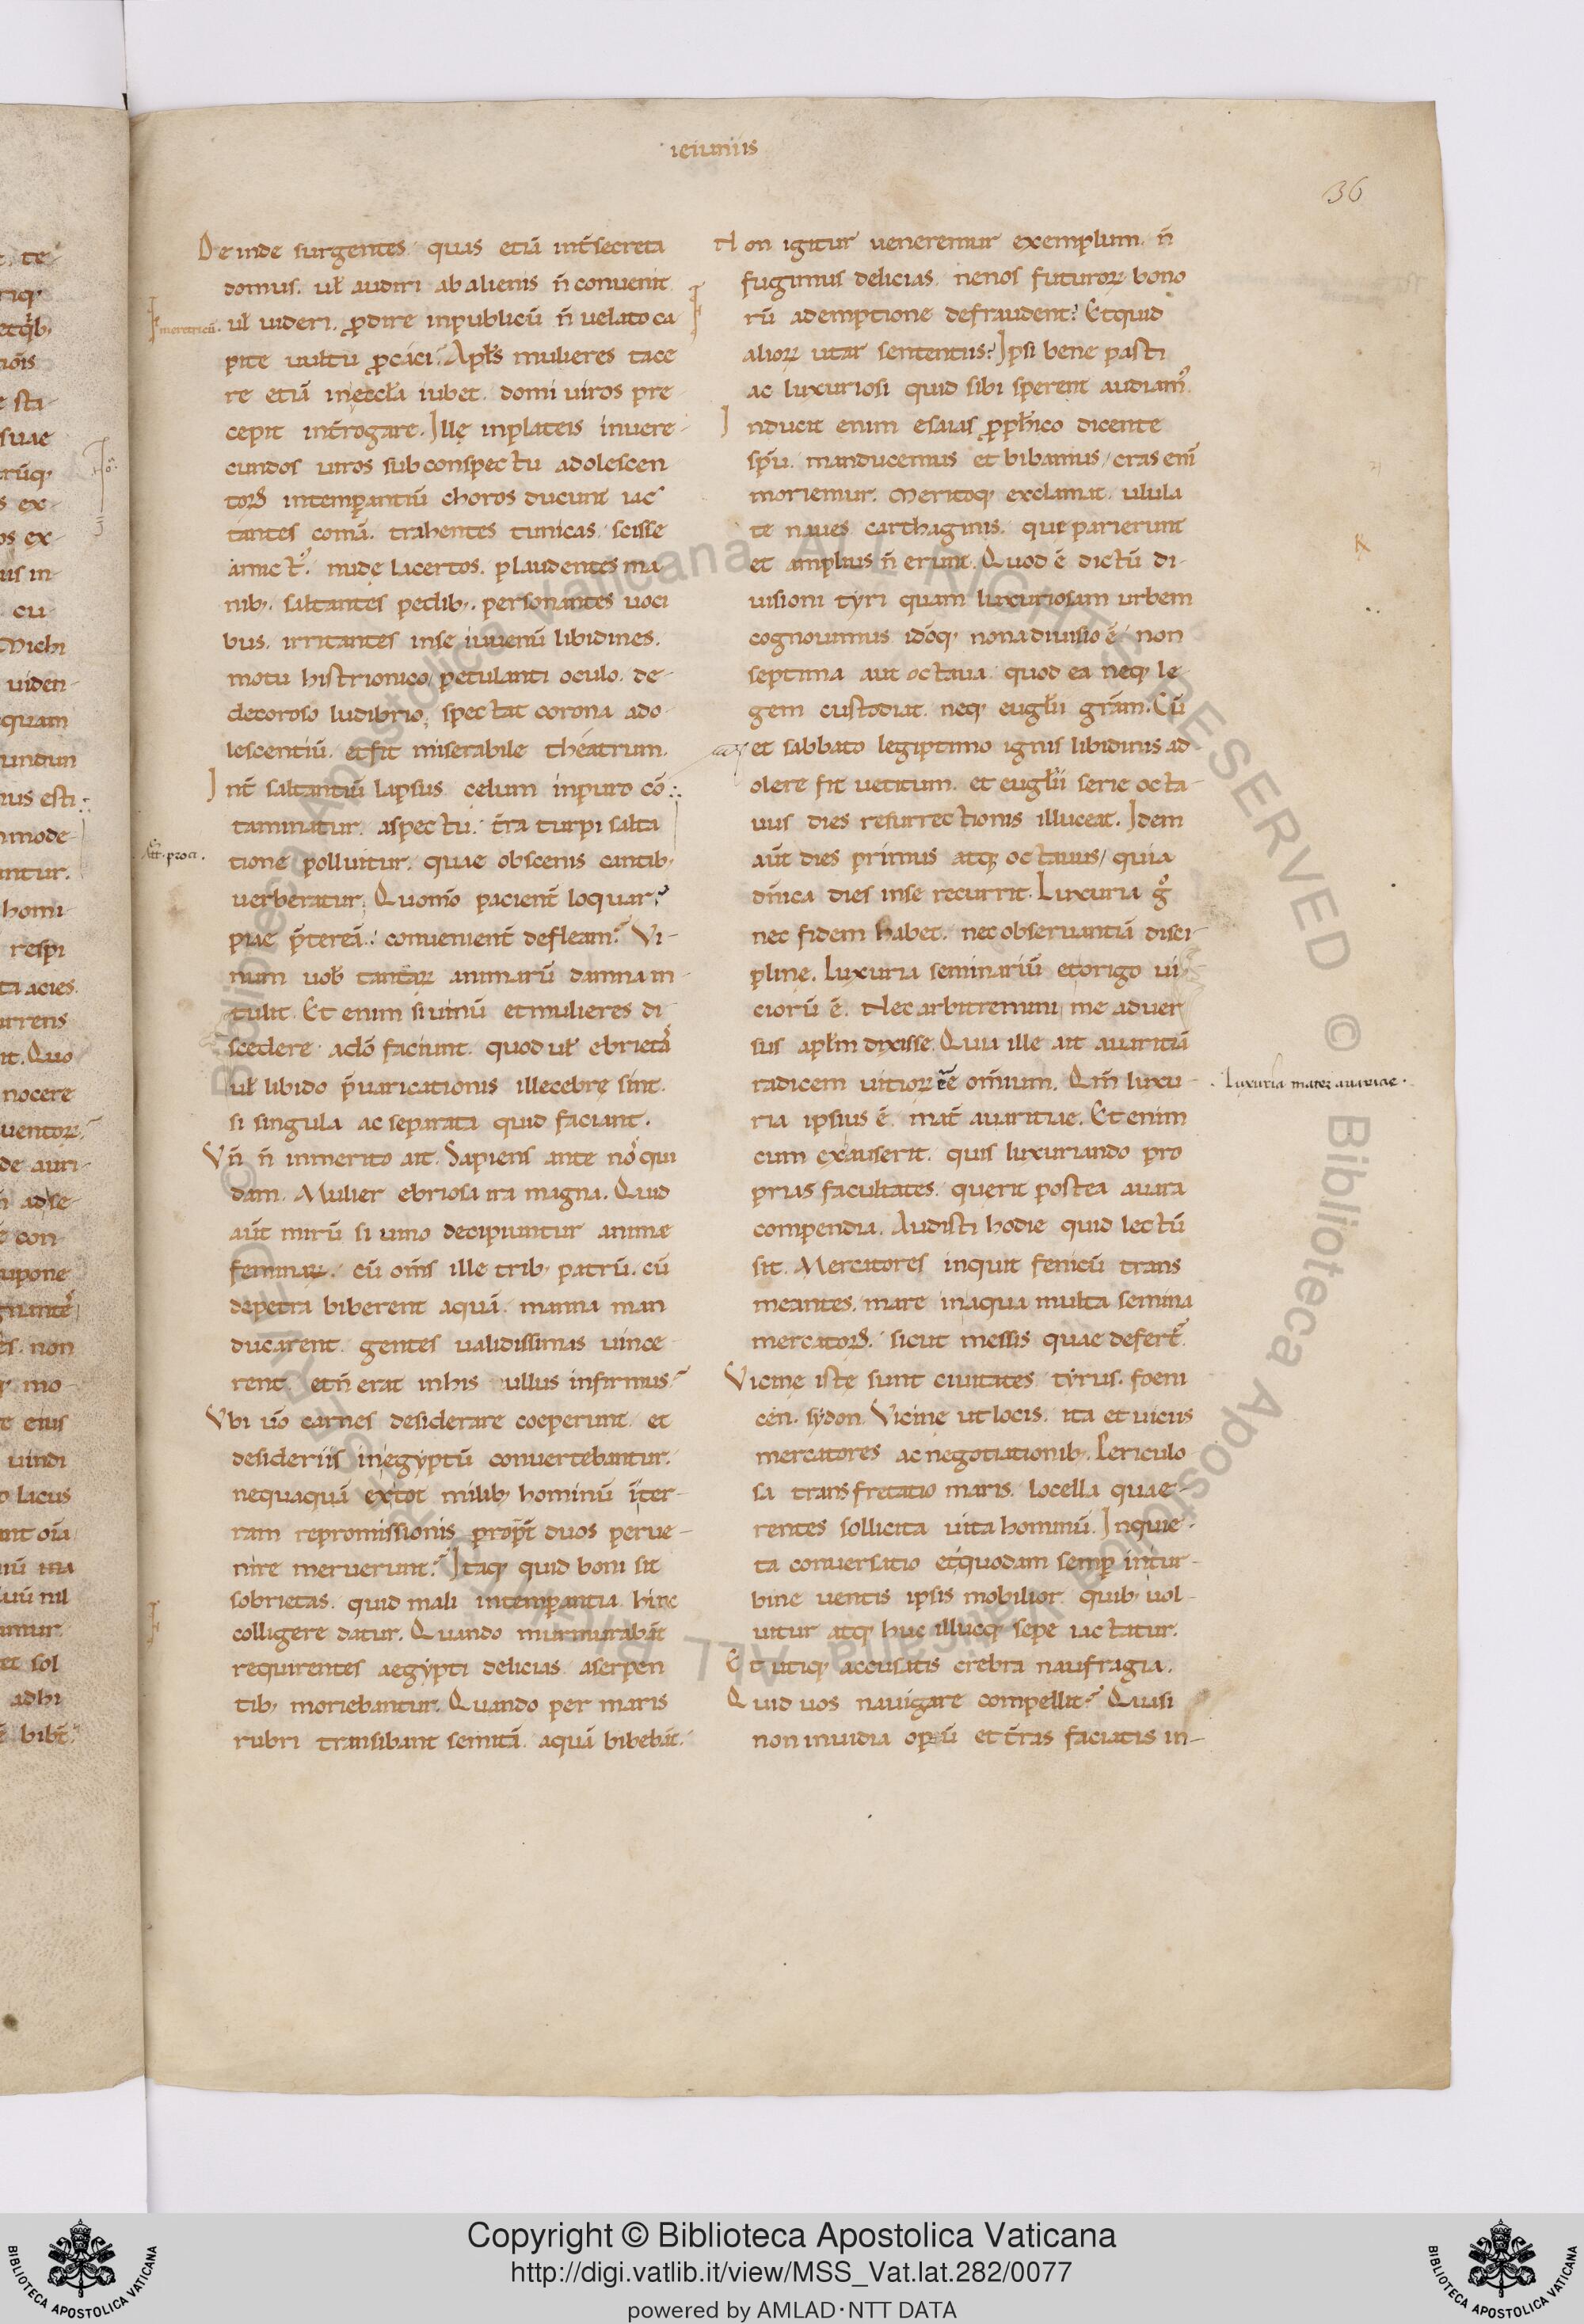 ieiuniis
36
Deinde surgentes. quas etiā int̄ secreta
domus. uł audiri ab alienis n̄ conuenit
uł uideri. ꝓdire inpublicū n̄ uelato ca
pite uultu ꝓcaci? Apłs mulieres tace
re etiā inęccła iubet. domi uiros pre
cepit int̄rogare. Illę inplateis inuere
cundos uiros sub conspectu adolescen
toꝝ intemꝑantiū choros ducunt iac
tantes comā. trahentes tunicas. scisse
amict᷒. nudę lacertos. plaudentes ma
nib;. saltantes pedib;. personantes uoci
bus. irritantes inse iuuenū libidines.
motu histrionico, petulanti oculo. de-
decoroso ludibrio, spectat corona ado
lescentiū. et fit miserabile theatrum.
Int̄ saltantiū lapsus celum inpuro cō
taminatur aspectu. t̄ra turpi salta
tione polluitur. quae obscenis cantib;
uerberatur. Quomō pacient̄ loquar?
prae p̄tereā. conuenient̄ defleam? Vi-
num uob̄ tantaꝝ animarū damna in
tulit. Et enim si uinū et mulieres di
scedere a dō faciunt. quod uł ebrietas
uł libido p̄uaricationis illecebrę sint.
si singula ac separata quid faciant.
Vn̄ n̄ inmerito ait. Sapiens ante nos qui
dam. Mulier ebriosa ira magna. Quid
aūt mirū si uino decipiuntur animæ
feminaꝝ. cū om̄s ille trib; patrū. cū
depetra biberent aquā. manna man
ducarent. gentes ualidissimas uince
rent. et n̄ erat inhis ullus infirmus?
Vbi uō carnes desiderare coeperunt. et
desideriis inęgyptū conuertebantur.
nequaquā ex tot milib; hominū ī ter-
ram repromissionis propt̄ duos perue-
nire meruerunt? Itaq; quid boni sit
sobrietas. quid mali intemꝑantia hinc
colligere datur. Quando murmurabāt
requirentes aegypti delicias. a serpen
tib; moriebantur. Quando per maris
rubri transibant semitā. aquā bibebāt.
Non igitur ueneremur exemplum. n̄
fugimus delicias. ne nos futuroꝝ bono
rū ademptione defraudent? Et quid
alioꝝ utar sententiis? Ipsi bene pasti
ac luxuriosi quid sibi sperent audiam᷒.
Inducit enim esaias ꝓph̄ico dicente
sp̄u. manducemus et bibamus, cras eni
moriemur. Meritoq; exclamat. ulula
te naues carthaginis. que parierunt
et amplius n̄ erunt. Quod ē dictū di-
uisioni tyri quam luxuriosam urbem
cognouimus idōq; nona diuisio ē non
septima aut octaua. quod ea neq; le
gem custodiat. neq; euglii grām. Cū
et sabbato legiptimo ignis libidinis ad
olere sit uetitum. et euglii serie octa-
uus dies resurrectionis illuceat. Idem
aūt dies primus atq; octauus, quia
dn̄ica dies inse recurrit. Luxuria g᷒
nec fidem habet. nec obseruantiā disci-
pline. Luxuria seminariū et origo ui
ciorū ē. Nec arbitremini me aduer
sus apłm dixisse. Quia ille ait auaritiā
radicem uitioꝝ ēē omium. Qm̄ luxu-
ria ipsius ē mat̄ auaritiae. Et enim
cum exauserit. quis luxuriando pro
prias facultates. querit postea auara
compendia. Audisti hodie quid lectū
sit. Mercatores inquit fenicū trans
meantes. mare inaqua multa semina
mercatoꝝ. sicut messis quae defert᷒.
Vicinę istę sunt ciuitates. tyrus. foeni
cen. sydon. Vicinę ut locis. ita et uicus
mercatores ac negotiationib;. Periculo
sa transfretatio maris. locella quae-
rentes sollicita uita hominū. Inquie-
ta conuersatio et quodam semꝑ intur-
bine uentis ipsis mobilior quib; uol-
uitur atq; huc illucq; sepe iactatur.
Et utiq; accusatis crebra naufragia.
Quid uos nauigare compellit? Quasi
non inuidia operū et t̄ras faciatis in-
Luxuria mater auaritiae.
Copyright © Biblioteca Apostolica Vaticana
http://digi.vatlib.it/view/MSS_Vat.lat.282/0077
powered by AMLAD·NTT DATA